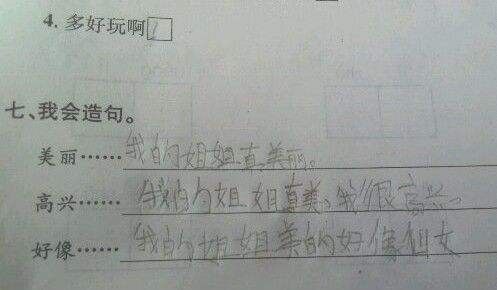 4. 多好玩啊
七、我会造句。
美丽……我的姐姐真美丽。
高兴……我的姐姐真美,我很高兴。
好像……我的姐姐美的好像仙女